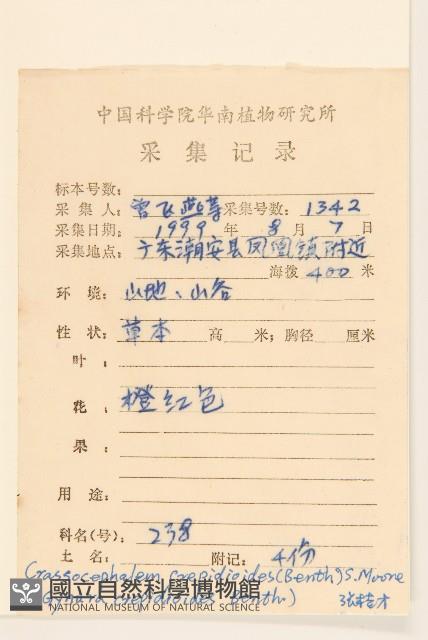 中国科学院华南植物研究所
采集记录
标本号数：
采集人：曾飞燕等 采集号数：1342
采集日期：1999 年 8 月 7 日
采集地点：广东潮安县凤凰镇附近
海拨 400 米
环境：山地、山谷
性状：草本 高 米；胸径 厘米
叶：
花：橙红色
果：
用途：
科名(号)：238
土名： 附记：4份
Crassocephalem crepidioides (Benth) S. Moore
張桂才
國立自然科學博物館
NATIONAL MUSEUM OF NATURAL SCIENCE